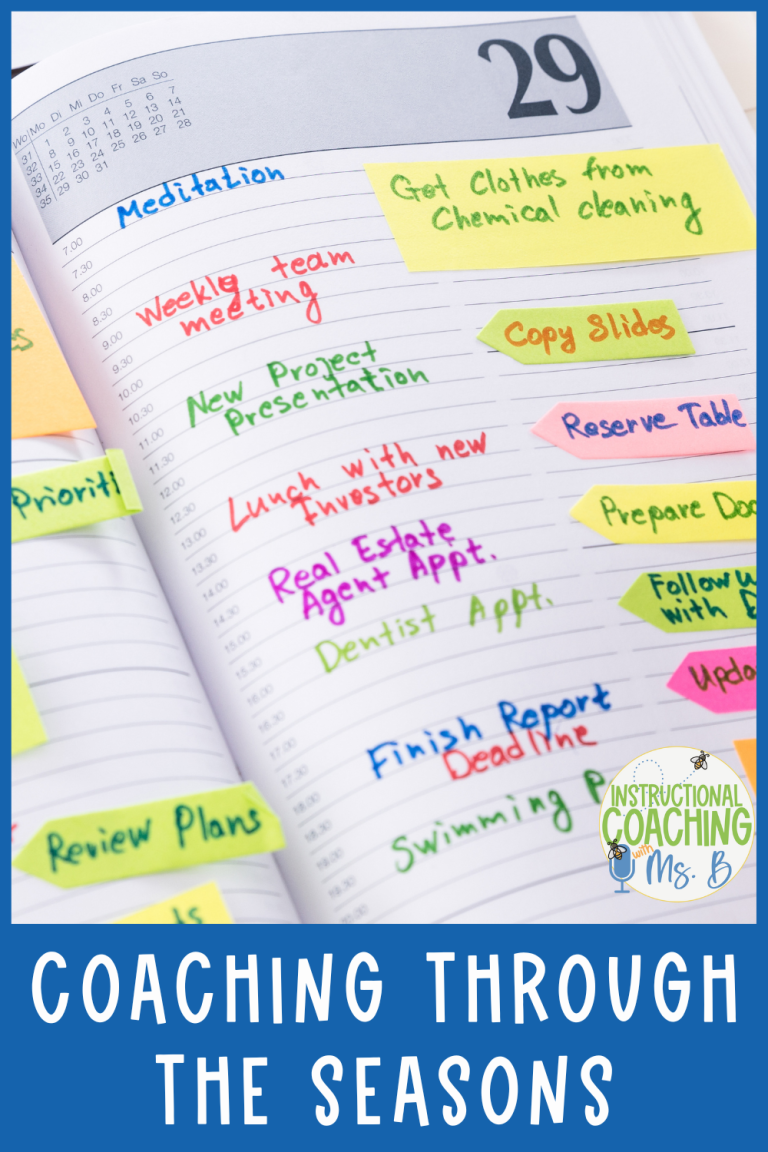 29
Wo Mo Di Mi Do Fr Sa So
31 1 2 3 4 5 6 7
32 8 9 10 11 12 13 14
33 15 16 17 18 19 20 21
34 22 23 24 25 26 27 28
35 29 30 31
7.00
7.30
8.00
8.30
9.00
9.30
10.00
10.30
11.00
11.30
12.00
12.30
13.00
13.30
14.00
14.30
15.00
15.30
16.00
16.30
17.00
17.30
18.00
18.30
19.00
19.30
20.00
Meditation
Weekly team
meeting
New Project
Presentation
Lunch with new
Investors
Real Estate
Agent Appt.
Dentist Appt.
Finish Report
Deadline
Swimming P
Get Clothes from
Chemical cleaning
Copy Slides
Reserve Table
Prepare Doc
Follow u
with
Upda
Prioriti
Review Plans
ts
INSTRUCTIONAL
COACHING
with
Ms. B
COACHING THROUGH
THE SEASONS